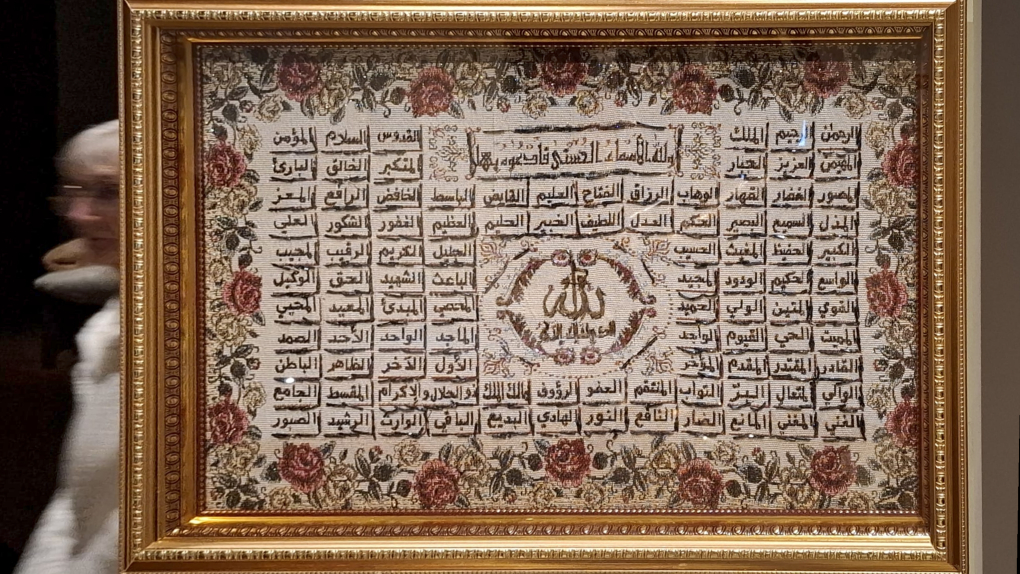 الرحمن الرحيم الملك القدوس السلام المؤمن
ولله الأسماء الحسنى فادعوه بها
المهيمن العزيز الجبار المتكبر الخالق البارئ
المصور الغفار القهار الوهاب الرزاق الفتاح العليم القابض الباسط الخافض الرافع المعز
المذل السميع البصير الحكم العدل اللطيف الخبير الحليم العظيم الغفور الشكور العلي
الكبير الحفيظ المغيث الحسيب الجليل الكريم الرقيب المجيب
الواسع الحكيم الودود المجيد الباعث الشهيد الحق الوكيل
الله
القوي المتين الولي الحميد المحصي المبدئ المعيد المحيي
المميت الحي القيوم الواجد الماجد الواحد الأحد الصمد
القادر المقتدر المقدم المؤخر الأول الآخر الظاهر الباطن
الوالي المتعال البر التواب المنتقم العفو الرؤوف مالك الملك ذو الجلال والإكرام المقسط الجامع
الغني المغني المانع الضار النافع النور الهادي البديع الباقي الوارث الرشيد الصبور